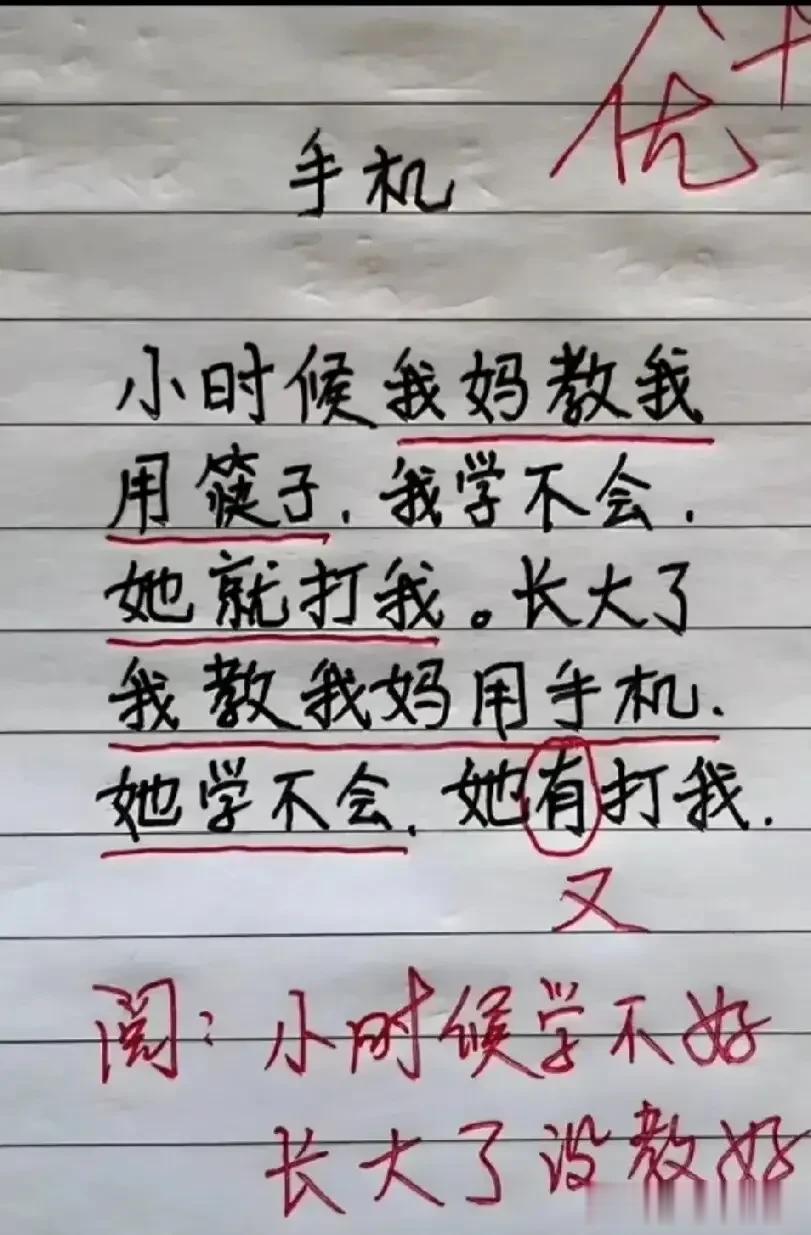 优+
手机
小时候我妈教我
用筷子.我学不会.
她就打我。长大了
我教我妈用手机.
她学不会.她有打我.
又
阅:小时候学不好
长大了没教好